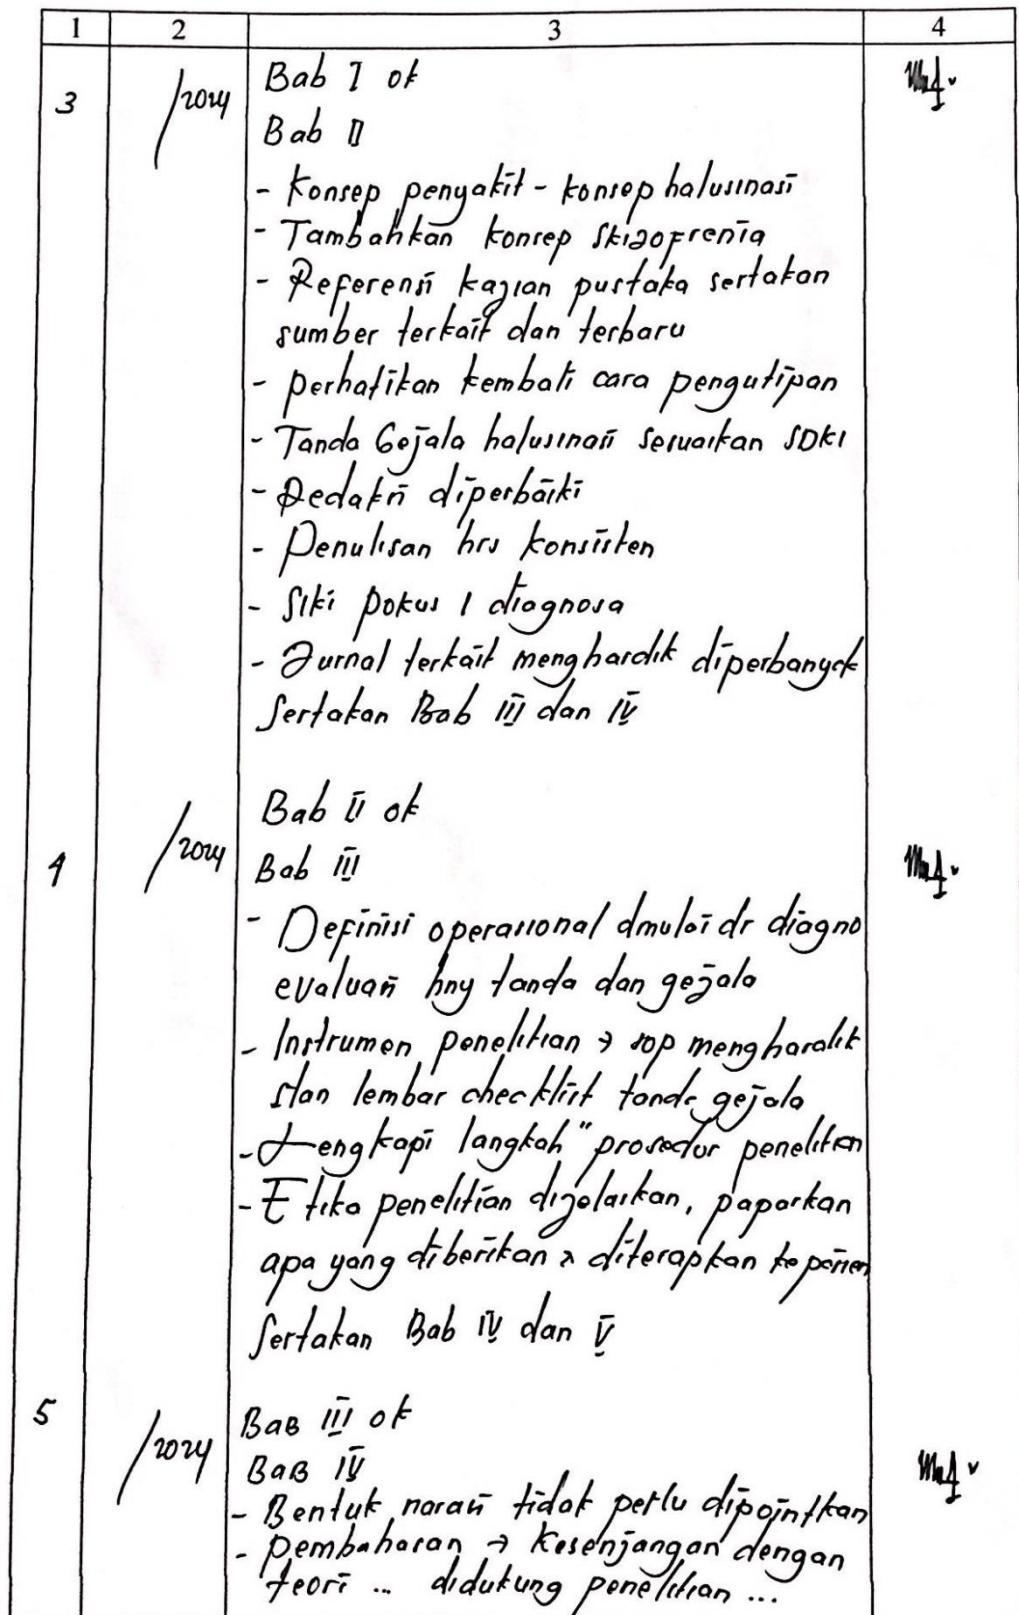 1 2 3 4
3 /2024 Bab I ok
Bab II
- Konsep penyakit - konsep halusinasi
- Tambahkan konsep skizofrenia
- Referensi kajian pustaka sertakan
sumber terkait dan terbaru
- perhatikan kembali cara pengutipan
- Tanda Gejala halusinasi sesuaikan SDKI
- Redaksi diperbaiki
- Penulisan hrs konsisten
- SIKI pokus 1 diagnosa
- Jurnal terkait menghardik diperbanyak
Sertakan Bab III dan IV
Bab II ok
4 /2024 Bab III
- Definisi operasional dmulai dr diagno
evaluasi hny tanda dan gejala
- Instrumen penelitian → sop menghardik
dan lembar checklist tanda gejala
- Lengkapi langkah" prosedur penelitian
- Etika penelitian dijelaskan, paparkan
apa yang diberikan & diterapkan ke pasien
Sertakan Bab IV dan V
5 /2024 BaB III ok
BaB IV
- Bentuk narasi tidak perlu dipointkan
- pembahasan → kesenjangan dengan
teori ... didukung penelitian ...